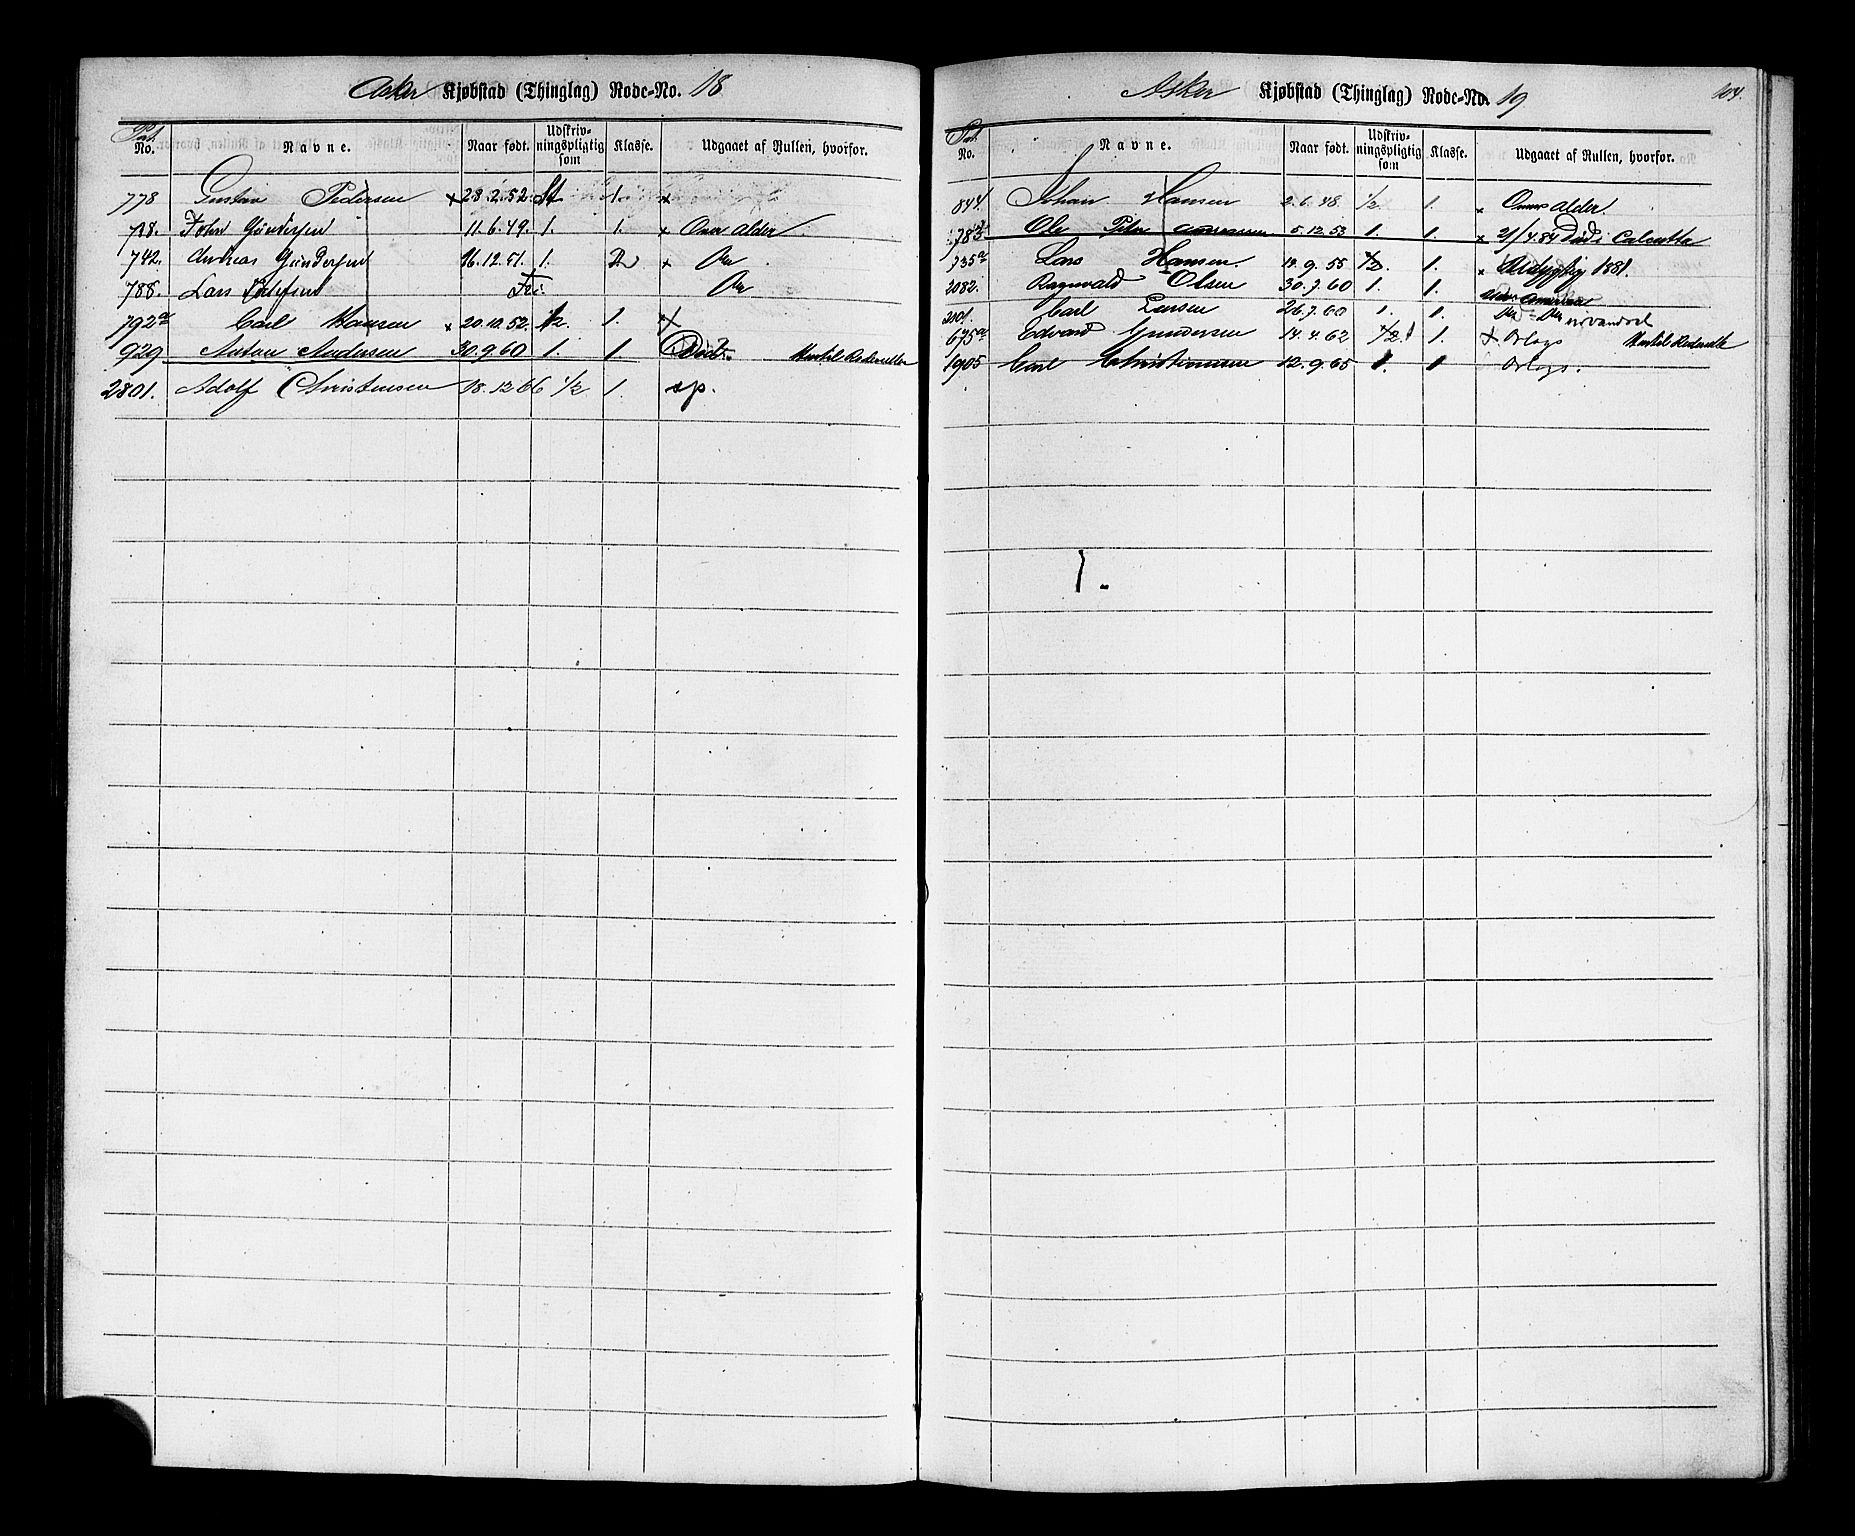 Asker Kjøbstad (Thinglag) Rode-No. 18
Pat. No. Navne. Naar født. Udskrivningspligtig som Klasse. Udgaaet af Rullen, hvorfor.
778 Gustav Pedersen x 28.2.52. St 1. x
718. John Gundersen 11.6.49. 1. 1. x Over alder
742. Andreas Gundersen 16.12.51. 1. x
788. Lars Fri
792a Carl Hansen x 20.10.52. 1/2. 1. x
929 Anton Andersen 30.9.60 1. 1. Død
2801. Adolf Christensen 18.12.66 1/2 1. sp.
Asker Kjøbstad (Thinglag) Rode-No. 19
104.
Pat. No. Navne. Naar født. Udskrivningspligtig som Klasse. Udgaaet af Rullen, hvorfor.
844. Johan Hansen 2.6.48. 1/2 1. x Over alder.
Ole Peter 5.12.53 1. 1. x 21/4.84 Død i Calcutta
735a Lars Hansen. 9.55 1/2. 1. x Udygtig 1881.
2082. Ragnvald Olsen 30.7.60 1. 1.
2101. Carl Larsen 26.7.60 1. 1.
675a Edvard Gundersen 14.4.62 1/2 1. x Orlogs
1905 Carl Christiansen 12.9.65 1. 1 Orlogs.
1.